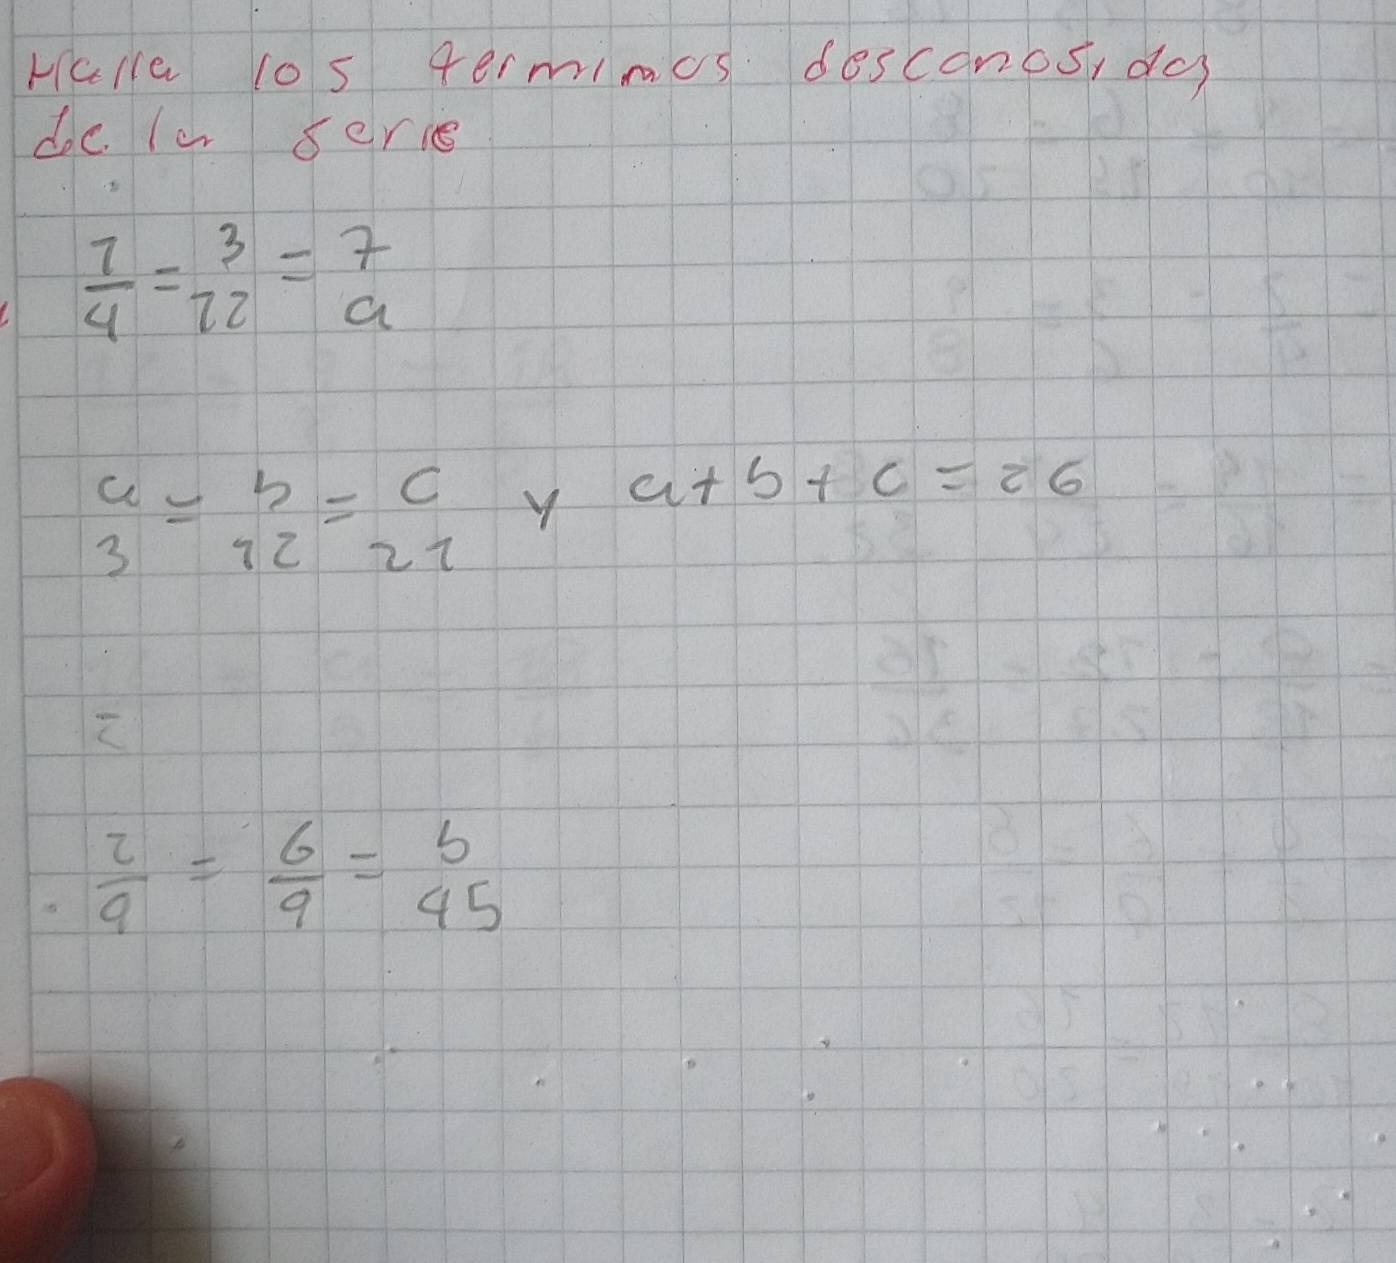 Halla los terminos desconosidos
de la serie
1/4 = 3/12 = 7/a
a/3 = b/12 = c/21 y a+b+c=26
=
2/9 = 6/9 = b/45